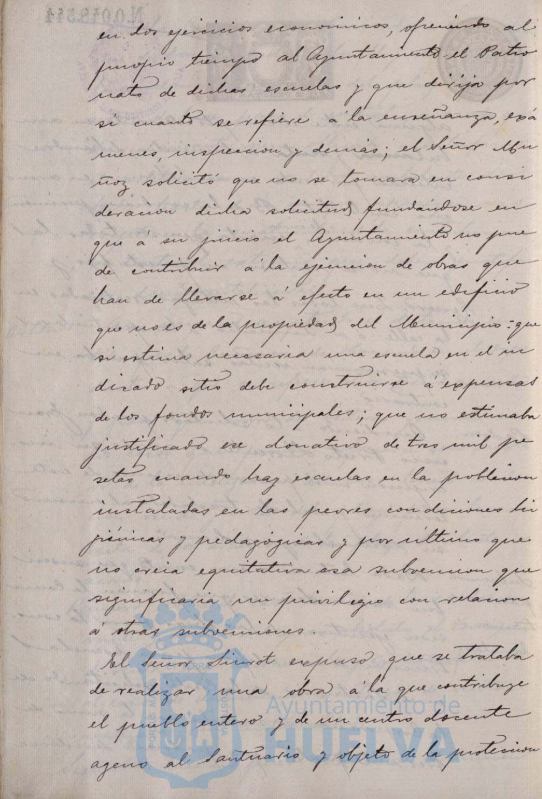 N.0018544
en dos ejercicios economicos, ofreciendo al
propio tiempo al Ayuntamiento el Patro
nato de dichas escuelas y que dirija por
sí cuanto se refiere á la enseñanza, exá
menes, inspeccion y demás; el Señor Mu
ñoz solicitó que no se tomara en consi
deracion dicha solicitud, fundándose en
que á su juicio el Ayuntamiento no pue
de contribuir á la ejecucion de obras que
han de llevarse á efecto en un edificio
que no es de la propiedad del Municipio: que
si estima necesaria una escuela en el in
dicado sitio debe construirse á expensas
de los fondos municipales; que no estimaba
justificado ese donativo de tres mil pe
setas cuando hay escuelas en la poblacion
instaladas en las peores condiciones hi
giénicas y pedagógicas y por último que
no creia equitativa esa subvencion que
significaria un privilegio con relacion
á otras subvenciones.
El Señor Siurot expuso que se trataba
de realizar una obra á la que contribuye
el pueblo entero y de un centro docente
ageno al Santuario y objeto de la proteccion
Ayuntamiento de
HUELVA